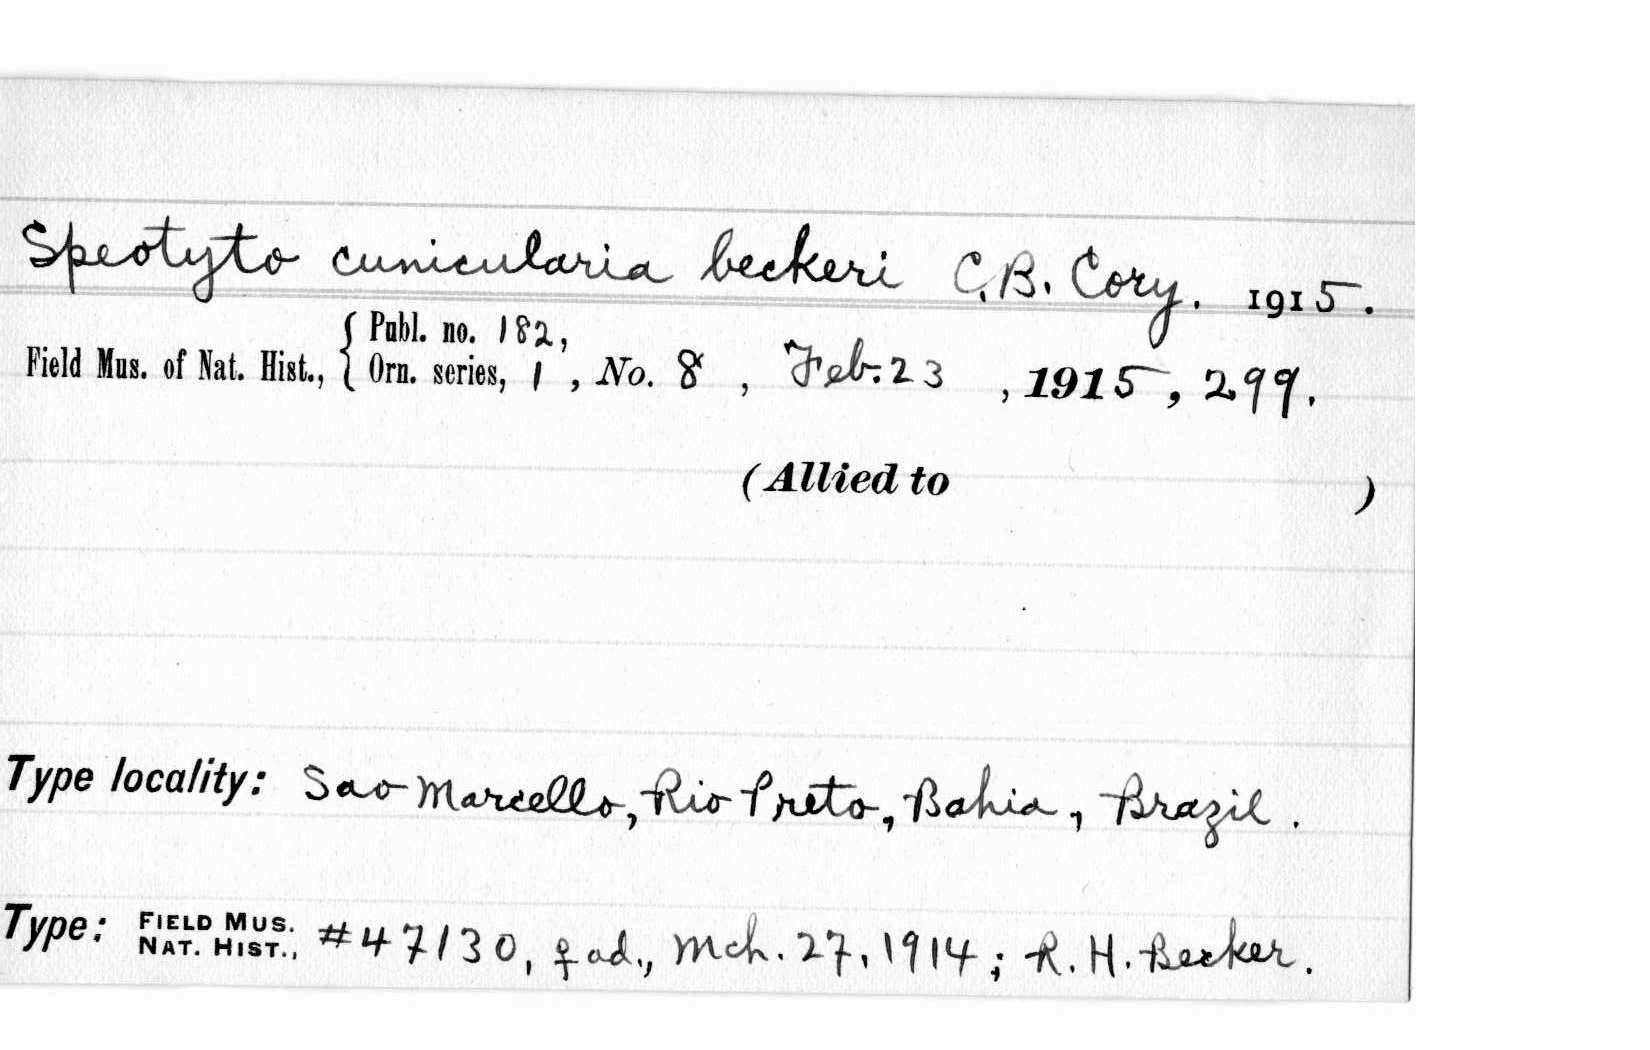 Speotyto cunicularia beckeri C.B. Cory. 1915.
Field Mus. of Nat. Hist., { Publ. no. 182,
Orn. series, 1, No. 8, Feb. 23, 1915, 299.
(Allied to )
Type locality: Sao Marcello, Rio Preto, Bahia, Brazil.
Type: FIELD MUS. NAT. HIST., #47130, ♀ ad., Mch. 27, 1914; R. H. Becker.